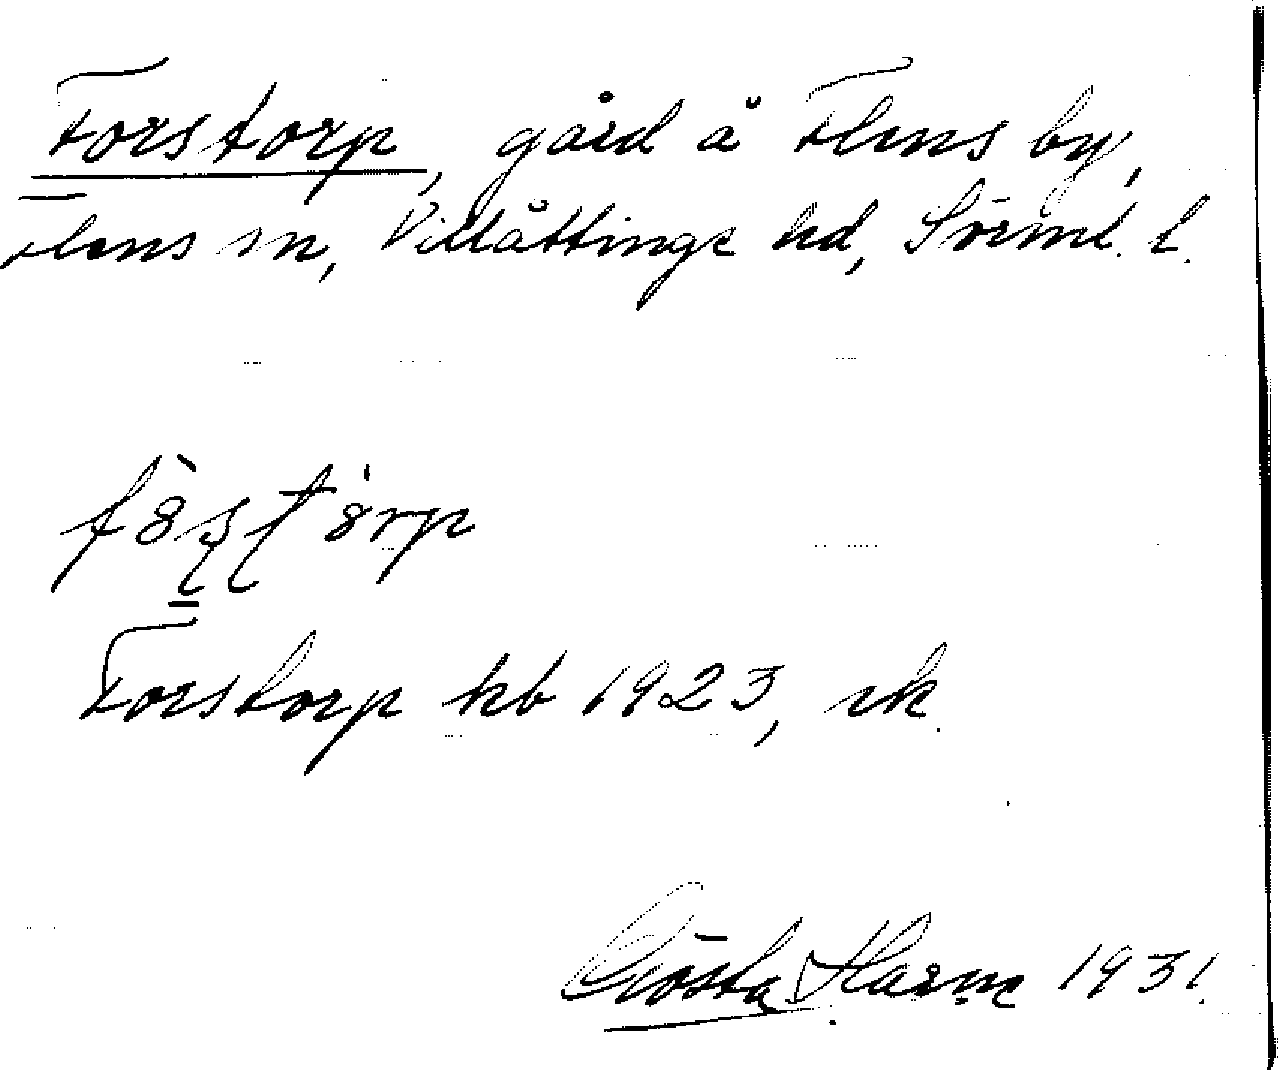 Forstorp, gård å Flens by,
Flens sn, Villåttinge hd, Sörml. l.
fòșțórp
Forstorp kb 1923, rk.
Gösta Harne 1931.